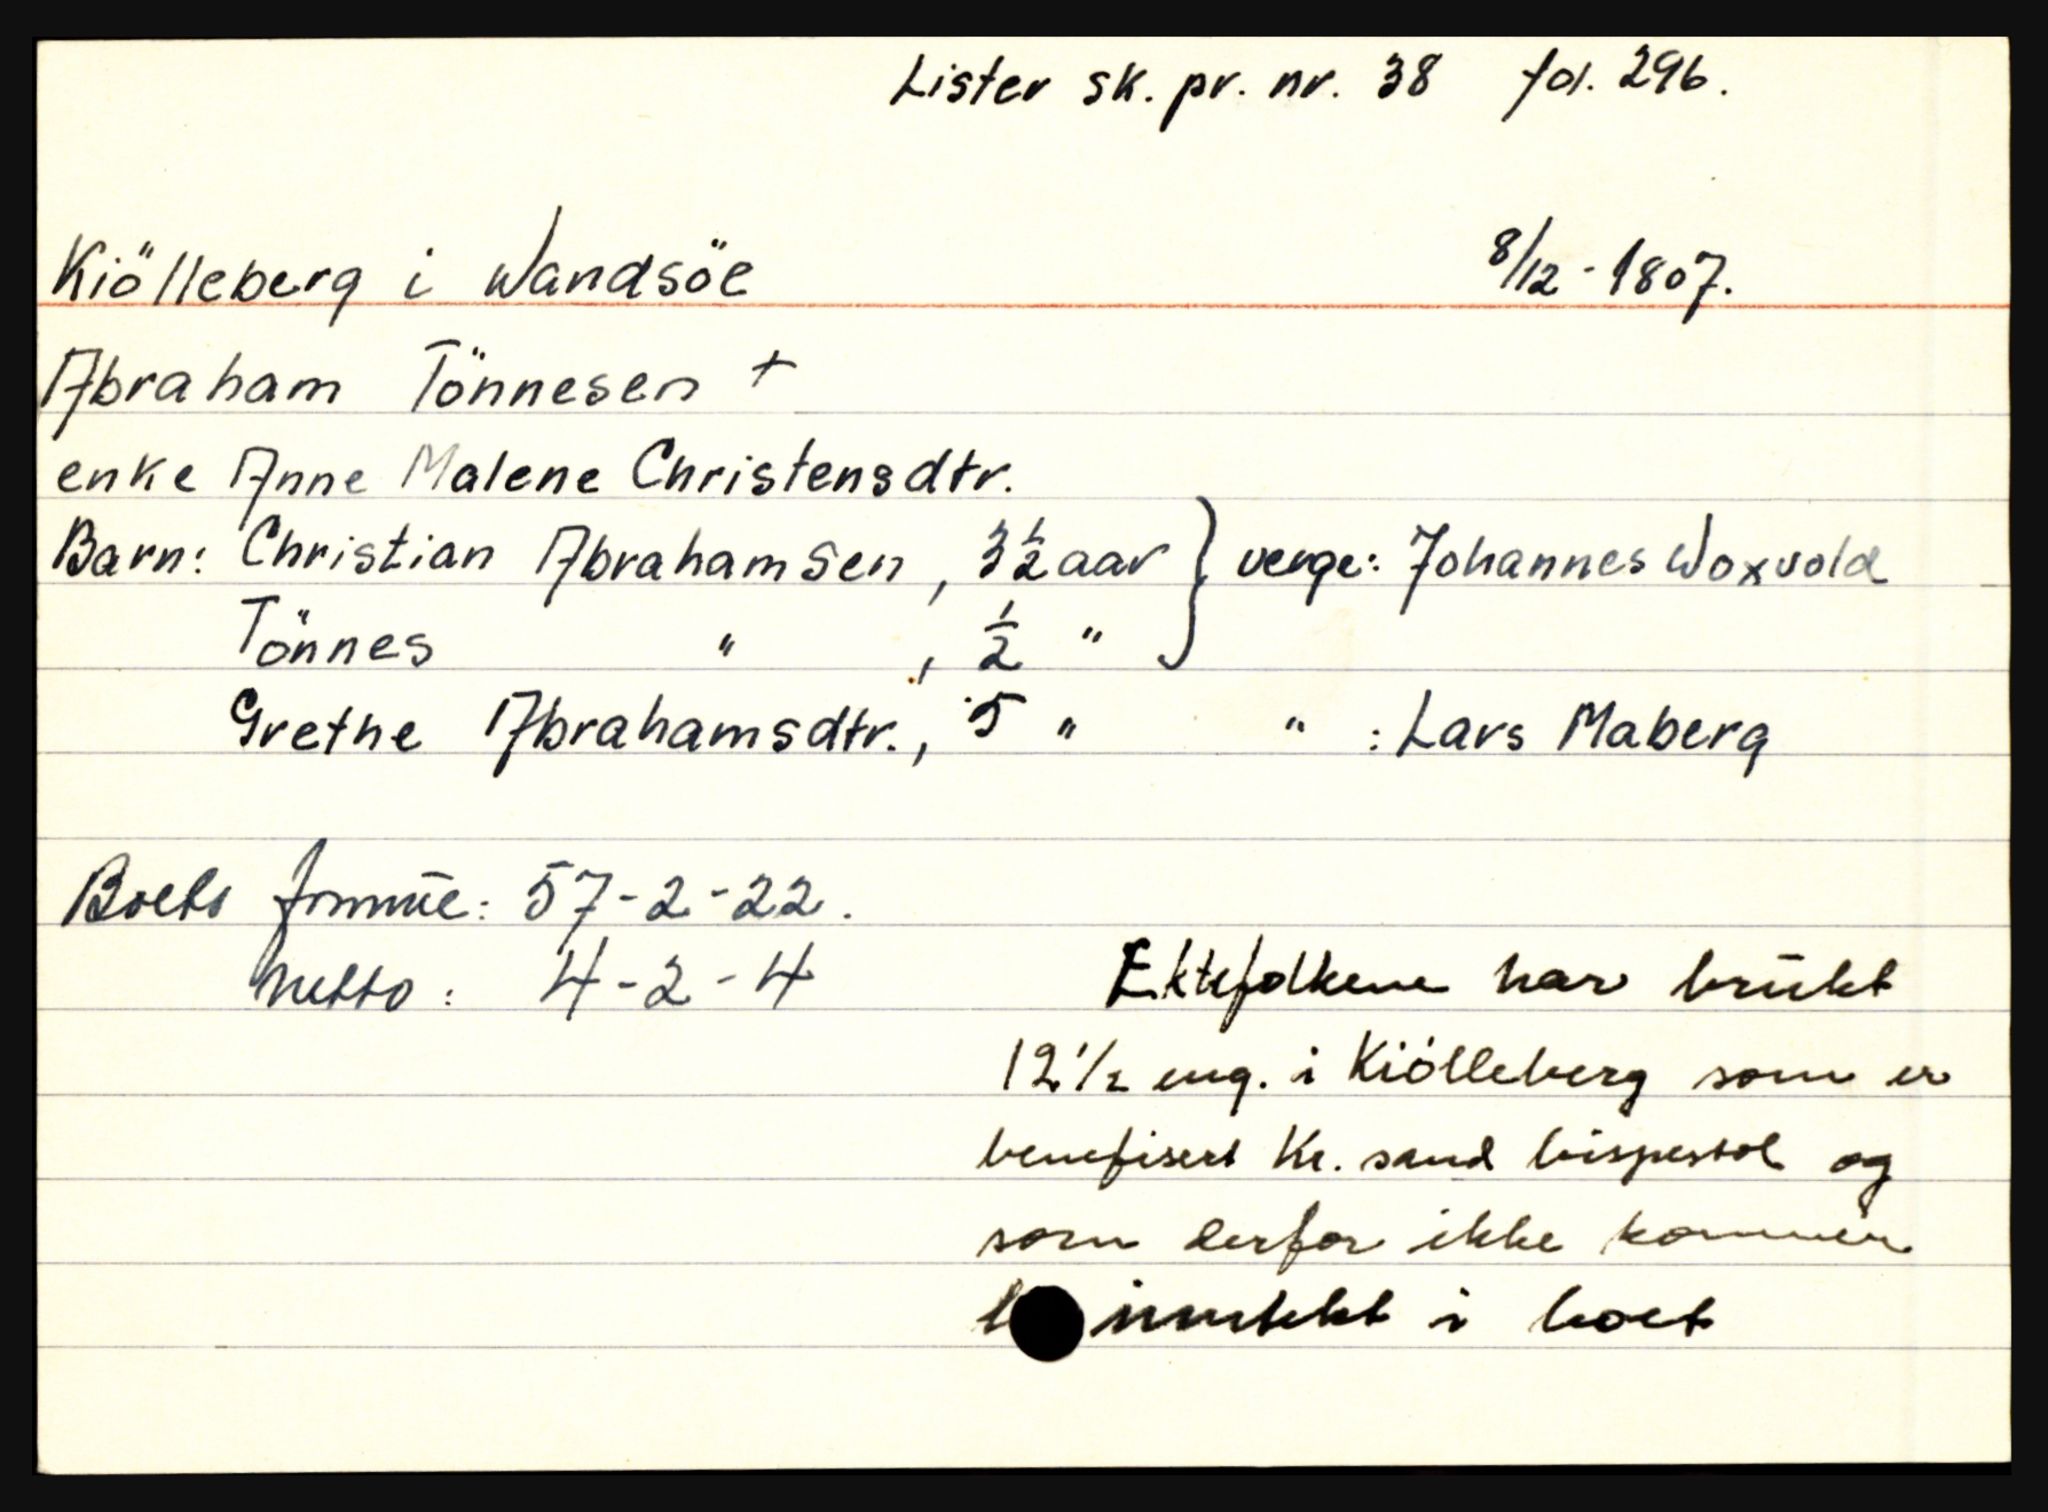 Lister sk. pr. nr. 38 fol. 296.
Kiölleberg i Wandsöe 8/12 - 1807.
Abraham Tönnesen +
enke Anne Malene Christensdtr.
Barn: Christian Abrahamsen, 3 1/2 aar } verge: Johannes Woxvold
Tönnes " , 1/2 " }
Grethe Abrahamsdtr., 5 " " : Lars Maberg
Boets formue: 57-2-22.
Netto: 4-2-4
Ektefolkene har brukt
12 1/2 eng. i Kiölleberg som er
benefisert Kr. sand bispestol og
som derfor ikke kommer
i boet